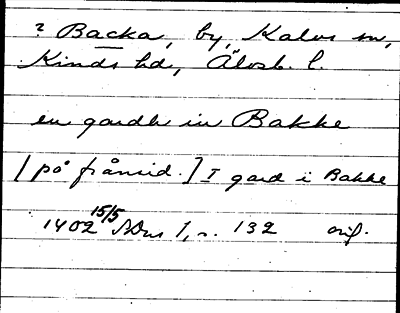 ? Backa, by, Kalvs sn,
Kinds hd, Älvsb. l.
en gardh in Bakke
[på frånsid.] I gard i Bakke
1402 15/5 SDns 1, s. 132 orig.